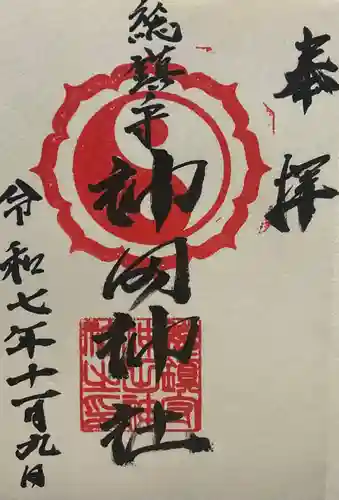 奉拝
総鎮守
神社
令和七年十一月九日